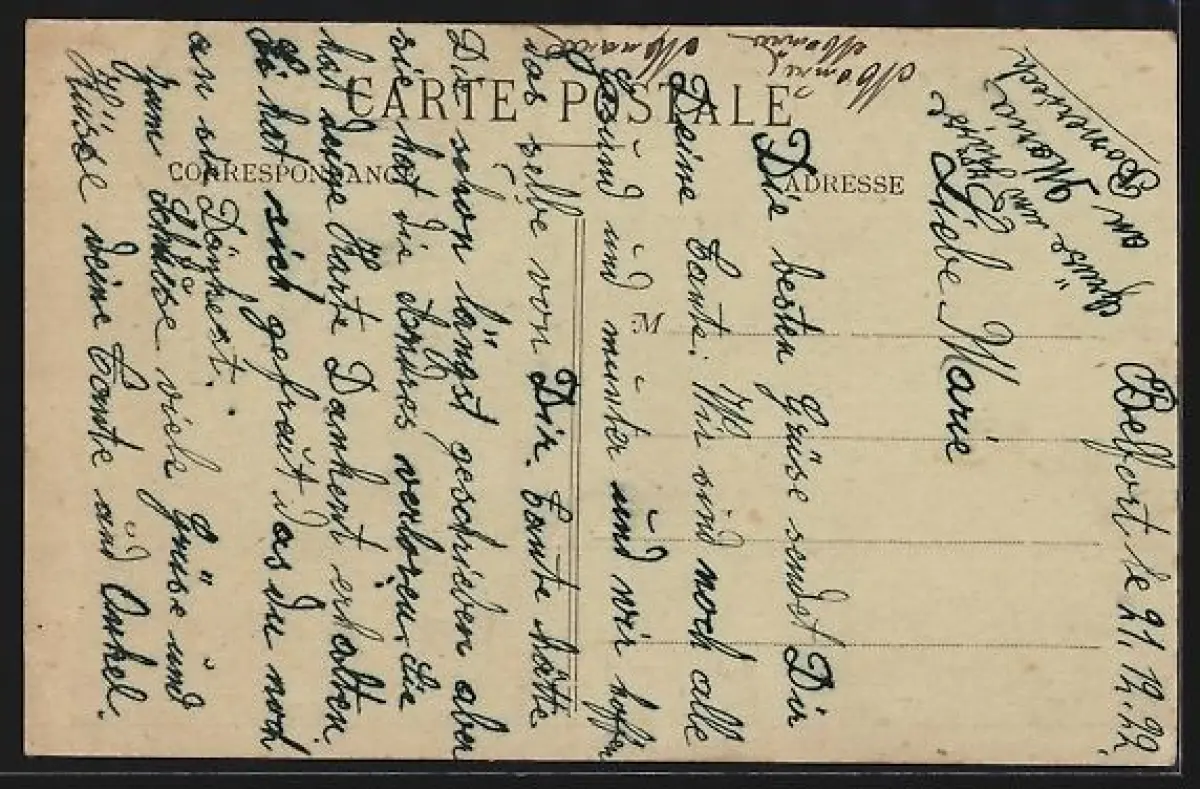 CARTE POSTALE
CORRESPONDANCE
ADRESSE
M
Belfort le 21. 12. 22
Liebe Marie
Die besten Grüse sendet Dir
Deine Tante. Wir sind noch alle
Gesund und munter und wir hoffen
das selbe von Dir. Tante hätte
Dir schon längst geschrieben aber
sie hat die Adres verloren. Sie
hat deine Karte Dankent erhalten.
Sie hat sich gefreut das du noch
an sie Dänkest.
zum Schluse viele Grüse und
Küsse deine Tante und Onkel.
Grüse und Küsse
an Maria